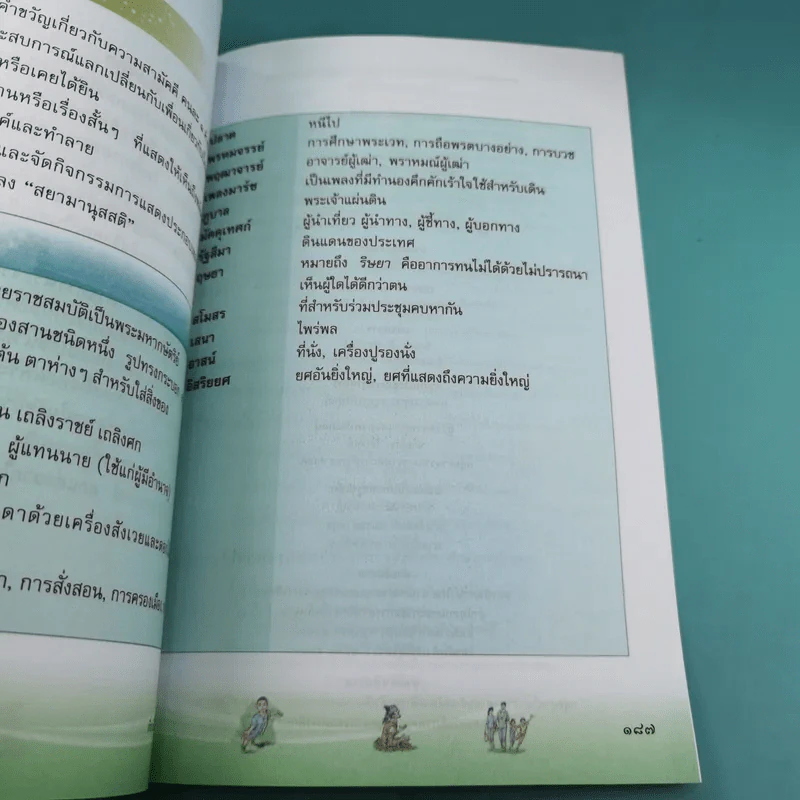 คำขวัญเกี่ยวกับความสามัคคี คนละ
ะสบการณ์แลกเปลี่ยนกับเพื่อนเกี่ยวกับ
หรือเคยได้ยิน
านหรือเรื่องสั้นๆ ที่แสดงให้เห็นถึง
ค์และทำลาย
และจัดกิจกรรมการแสดงประกอบ
ลง “สยามานุสสติ”
ยราชสมบัติเป็นพระมหากษัตริย์
องสานชนิดหนึ่ง รูปทรงกระบอก
ต้น ตาห่างๆ สำหรับใส่สิ่งของ
น เถลิงราชย์ เถลิงศก
ผู้แทนนาย (ใช้แก่ผู้มีอำนาจ)
ก
ดาด้วยเครื่องสังเวยและดอก
า, การสั่งสอน, การครองเมือง
ปลาต หนีไป
พรหมจรรย์ การศึกษาพระเวท, การถือพรตบางอย่าง, การบวช
พฤฒาจารย์ อาจารย์ผู้เฒ่า, พราหมณ์ผู้เฒ่า
เพลงมาร์ช เป็นเพลงที่มีทำนองคึกคักเร้าใจใช้สำหรับเดิน
ภูบาล พระเจ้าแผ่นดิน
มัคคุเทศก์ ผู้นำเที่ยว ผู้นำทาง, ผู้ชี้ทาง, ผู้บอกทาง
รัฐสีมา ดินแดนของประเทศ
ฤษยา หมายถึง ริษยา คืออาการทนไม่ได้ด้วยไม่ปรารถนา
เห็นผู้ใดได้ดีกว่าตน
สโมสร ที่สำหรับร่วมประชุมคบหากัน
เสนา ไพร่พล
อาสน์ ที่นั่ง, เครื่องปูรองนั่ง
อิสริยยศ ยศอันยิ่งใหญ่, ยศที่แสดงถึงความยิ่งใหญ่
๑๘๗